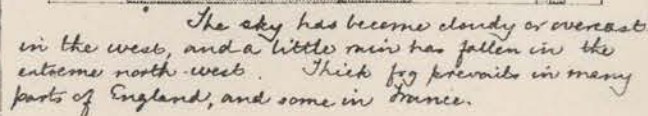 The sky has become cloudy or overcast
in the west, and a little rain has fallen in the
extreme north-west. Thick fog prevails in many
parts of England, and some in France.